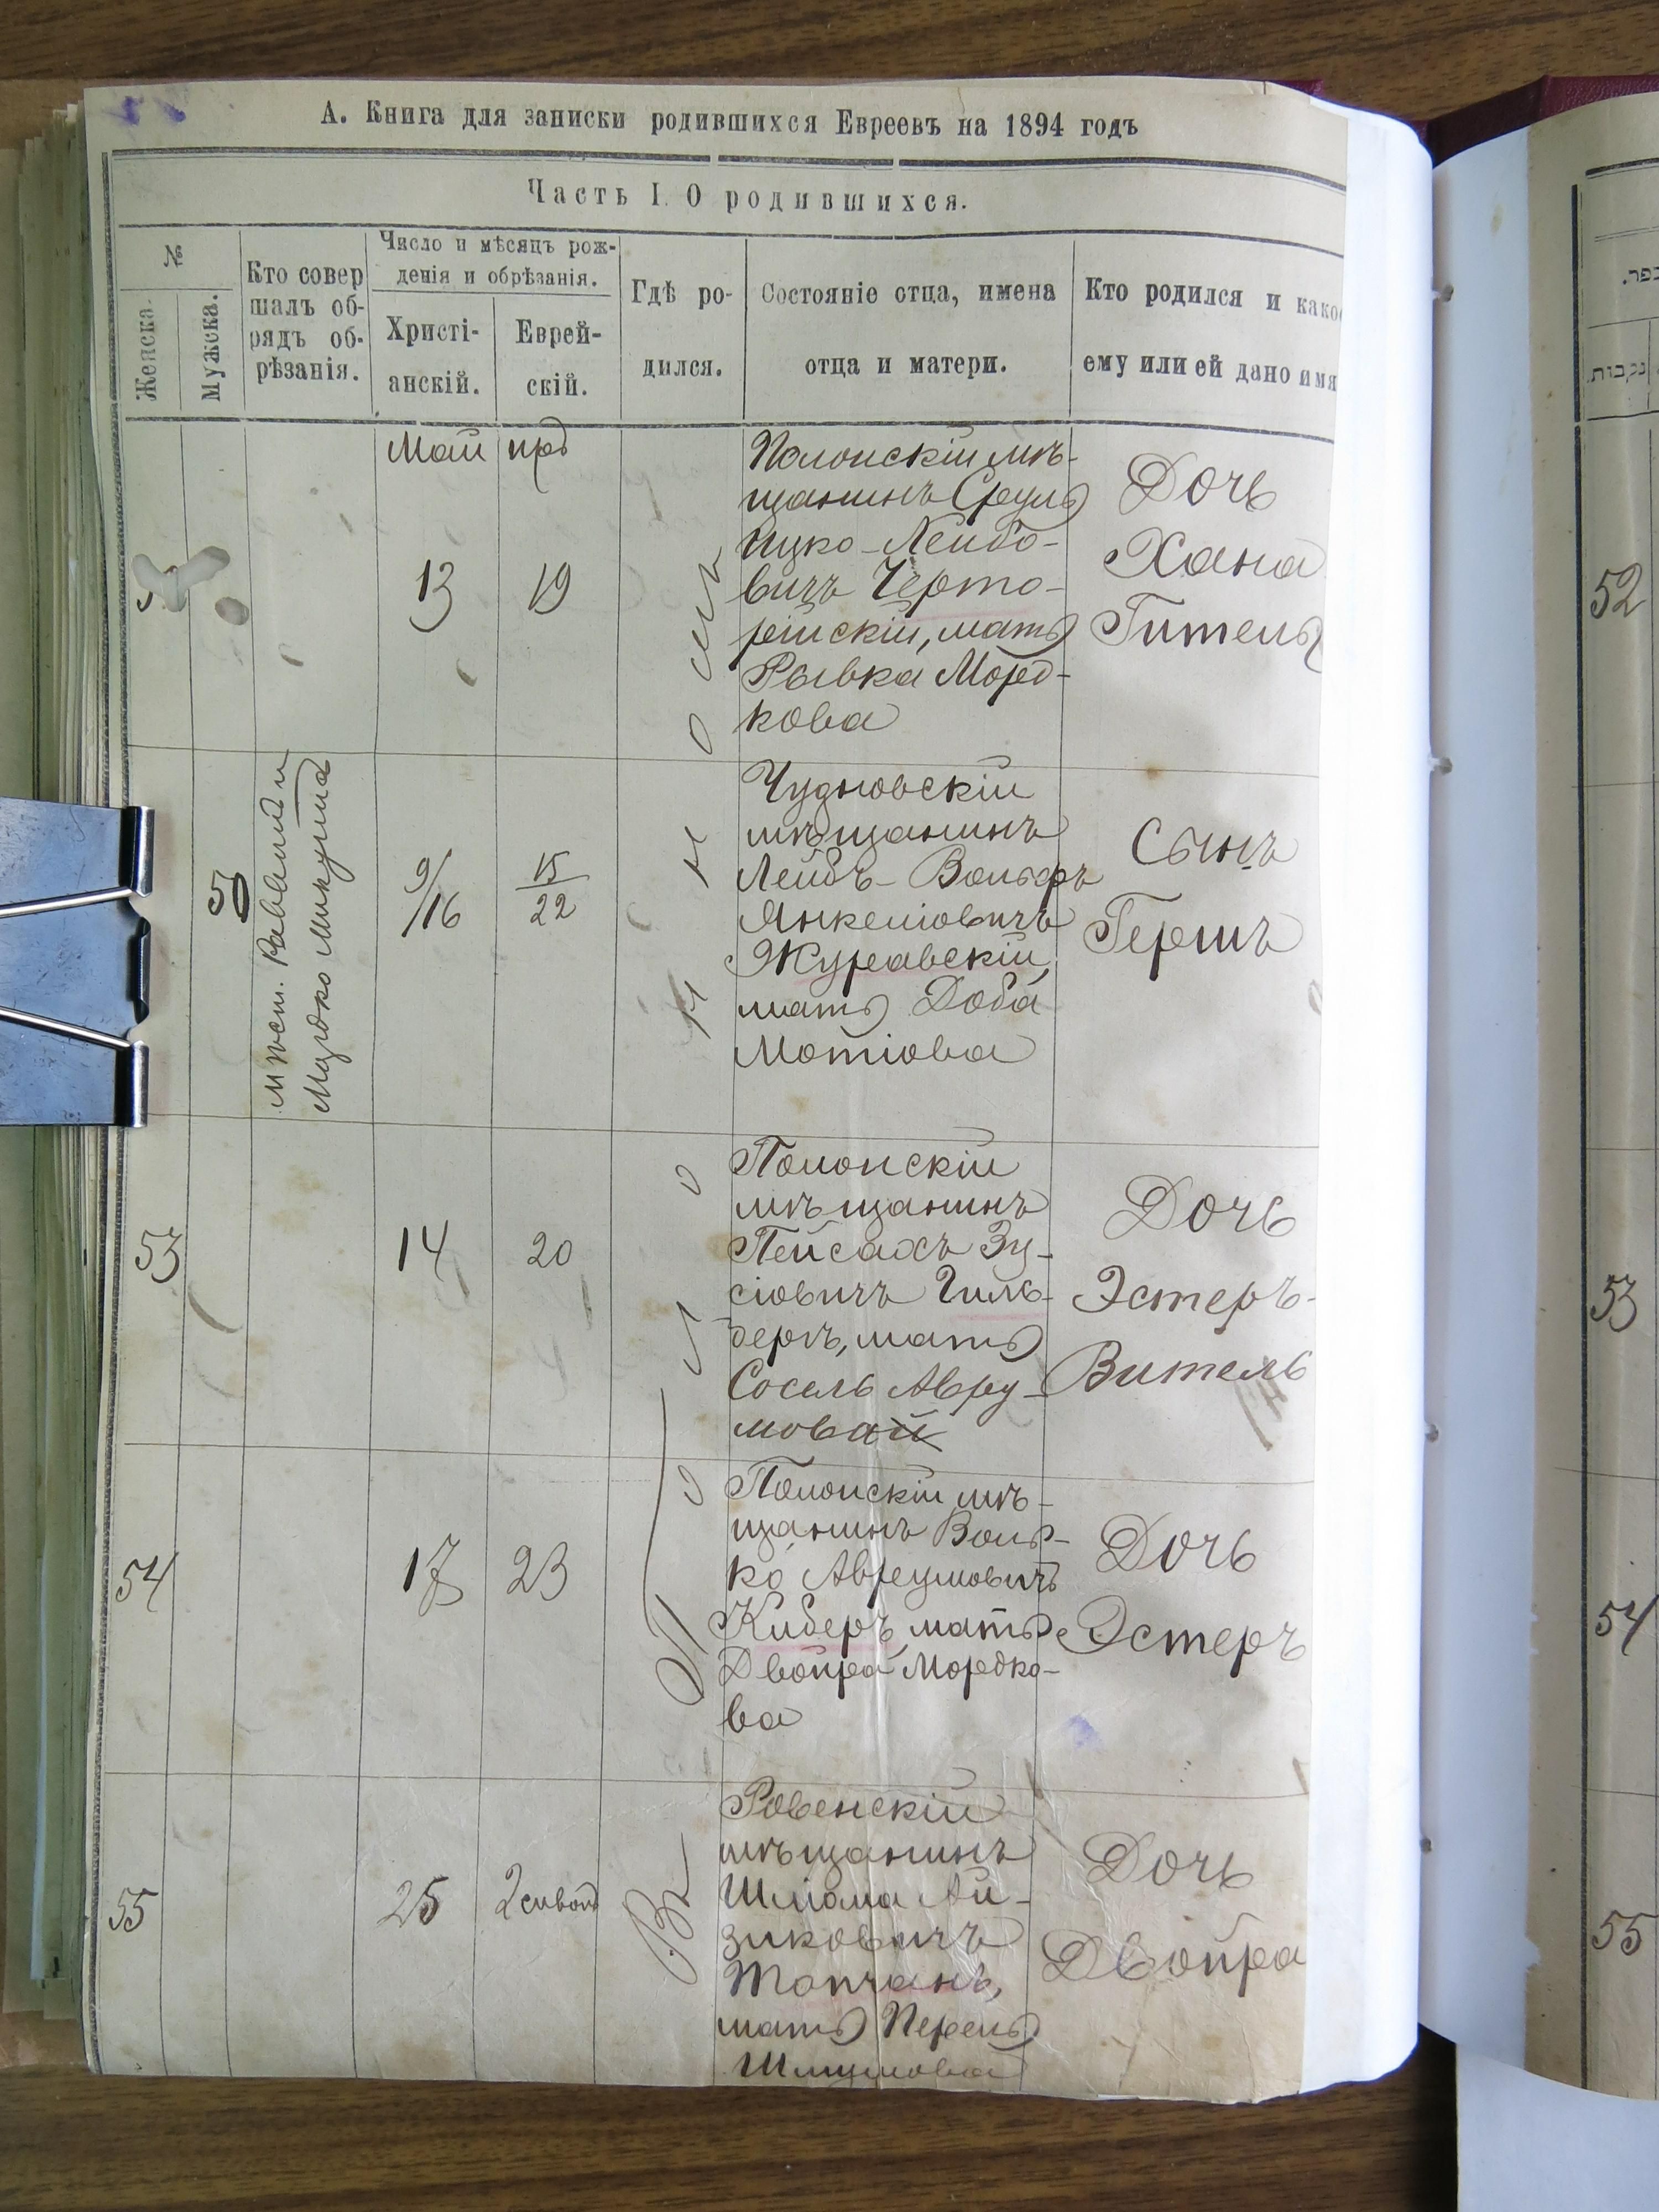 А. Книга для записки родившихся Евреевъ на 1894 годъ
Часть I. О родившихся.
№
Женска.
Мужска.
Кто совер
шалъ об-
рядъ об-
рѣзанія.
Число и мѣсяцъ рож-
денія и обрѣзанія.
Христі-
анскій.
Еврей-
скій.
Гдѣ ро-
дился.
Состояніе отца, имена
отца и матери.
Кто родился и какое
ему или ей дано имя
Въ
Полонномъ
Май
13
19
Полонскій мѣ-
щанинъ Сруль
Ицко-Лейбо-
вичъ Черто-
рійскій, мать
Рывка Морд-
кова
Дочь
Хана
Гитель
50
мѣст. Раввинъ
9/16
15
22
Чудновскій
мѣщанинъ
Лейбъ-Вольфъ
Янкеліовичъ
Журавскій,
мать Доба
Мотіова
Сынъ
Гершъ
53
14
20
Полонскій
мѣщанинъ
Пейсахъ Зу-
сіовичъ Гиль-
беръ, мать
Сосель Авру-
мовай
Дочь
Эстеръ-
Витель
54
17
23
Полонскій мѣ-
щанинъ Воль-
ко Аврумовичъ
Киберъ, мать
Двойра Мордко-
ва
Дочь
Эстеръ
55
25
2 сивонъ
Ровенскій
мѣщанинъ
Шліома Ай-
зиковичъ
Топчанъ,
мать Перель
Шмулова
Дочь
Двойра
נקבות.
52
53
54
55